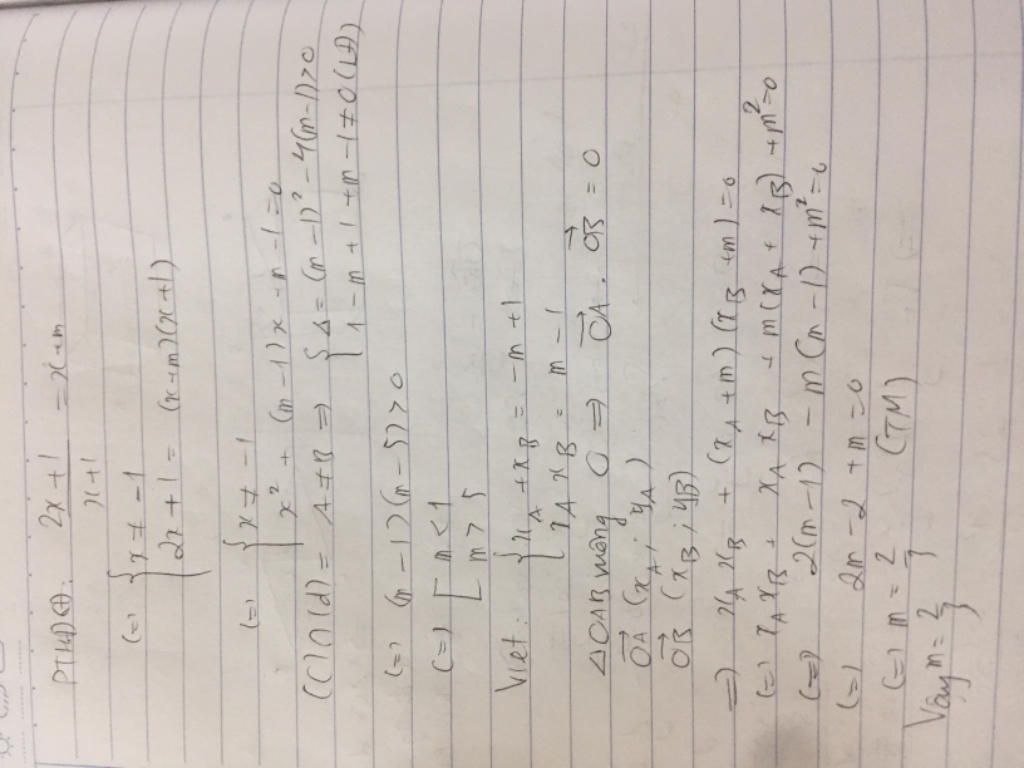 PTHĐGĐ: \frac{2x+1}{x+1} = x+m
(=) { x ≠ -1
2x+1 = (x+m)(x+1)
(=) { x ≠ -1
x² + (m-1)x + m-1=0
(C)∩(d) = A≠B => { Δ = (m-1)² - 4(m-1)>0
1-m+1+m-1≠0 (LĐ)
(=) (m-1)(m-5)>0
(=) [ m<1
m>5
Viet: { x_A + x_B = -m+1
x_A x_B = m-1
ΔOAB vuông O => \vec{OA} . \vec{OB} = 0
\vec{OA} (x_A; y_A)
\vec{OB} (x_B; y_B)
=) x_A x_B + (x_A+m)(x_B+m)=0
(=) x_A x_B + x_A x_B + m(x_A + x_B)+m²=0
(=) 2(m-1) - m(m-1)+m²=0
(=) 2m-2+m=0
(=) m = \frac{2}{3} (TM)
Vậy m = \frac{2}{3}